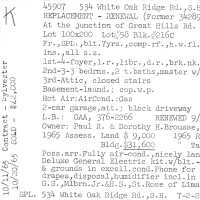 K
Contract - Drywriter
10/11/65
10/20/65 SOLD $42,000
45907   534 White Oak Ridge Rd.,S.H
REPLACEMENT - RENEWAL (Former #4285
At the junction of Great Hills Rd.
Lot 100x200  Lot/58 Blk.#216C
Fr.,SPL.,bit.Tyrs.,comp.rf.,h.w.fl.
ins.,all s.s.
1st-4-foyer,l.r.,libr.,d.r.,brk nk.
2nd-3-3 bedrms.,2 t.baths,master w/
3rd-Attic, closed stairs
Basement-laund.; cop.w.p.
Hot Air:AirCond.Gas
2-car garage,att.; block driveway
L.B.: OAA, 376-2266    RENEWED 9/
Owner: Paul R. & Dorothy E.Brousse,
1965 Assess. Land $ 9,000   1965 R
Bldg. $31,600   Ta
Poss.arr.Fully air-cond.,nicely lan
Deluxe General Electric kit.w/blt.-
& grounds in excell.cond.Phone for
drapes,disposal,humidifier incl.in
G.S.,Mlbrn.Jr.&H.S.,St.Rose of Lima
SPL.  534 White Oak Ridge Rd.,S.H.  T-2-2